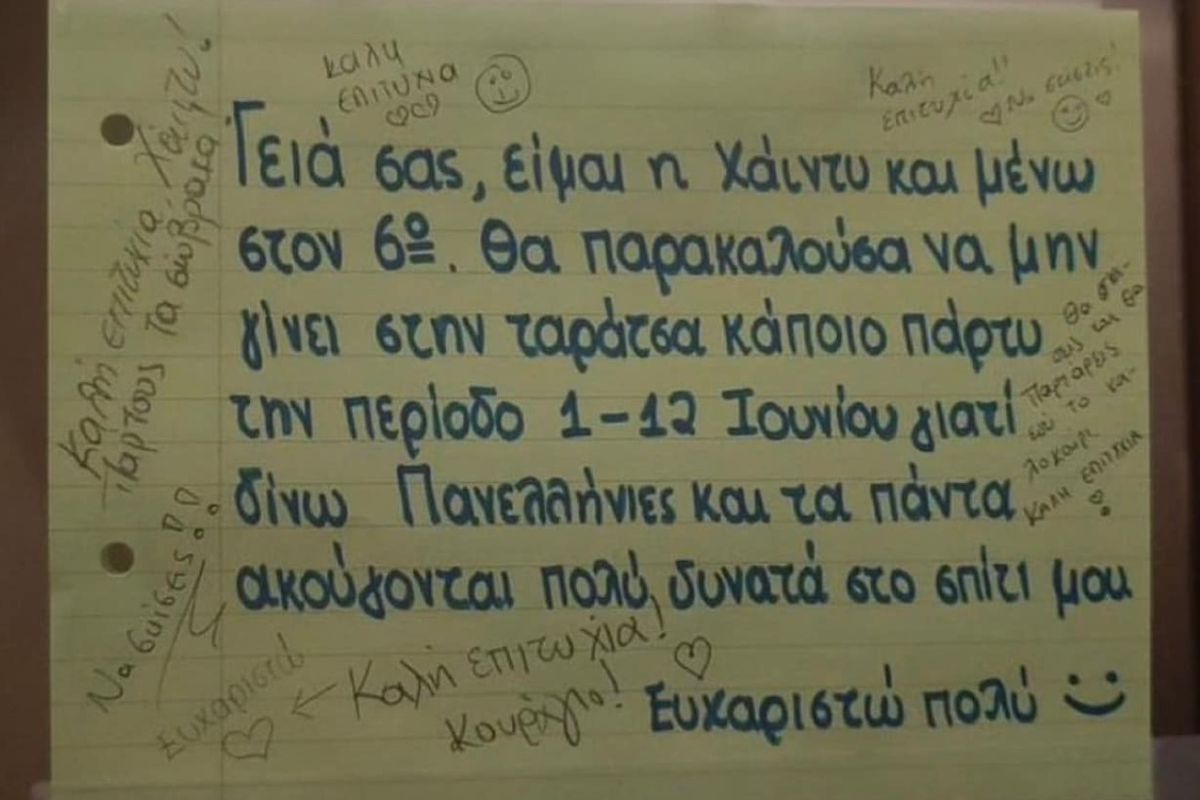 καλη
επιτυχια
Καλή
επιτυχία!!
Να σκίσεις!
Γειά σας, είμαι η Χάιντυ και μένω
στον 6º. Θα παρακαλούσα να μην
γίνει στην ταράτσα κάποιο πάρτυ
την περίοδο 1-12 Ιουνίου γιατί
δίνω Πανελλήνιες και τα πάντα
ακούγονται πολύ δυνατά στο σπίτι μου
Ευχαριστώ πολύ
Καλή επιτυχία Χάιντυ!
Παρτους τα σώβρακα
Να σκίσεις!!
Ευχαριστώ
Καλή επιτυχία!
Κουράγιο!
Θα σκί-
σεις και θα
παρτάρεις
όλο το κα-
λοκαίρι
Καλη επιτυχια